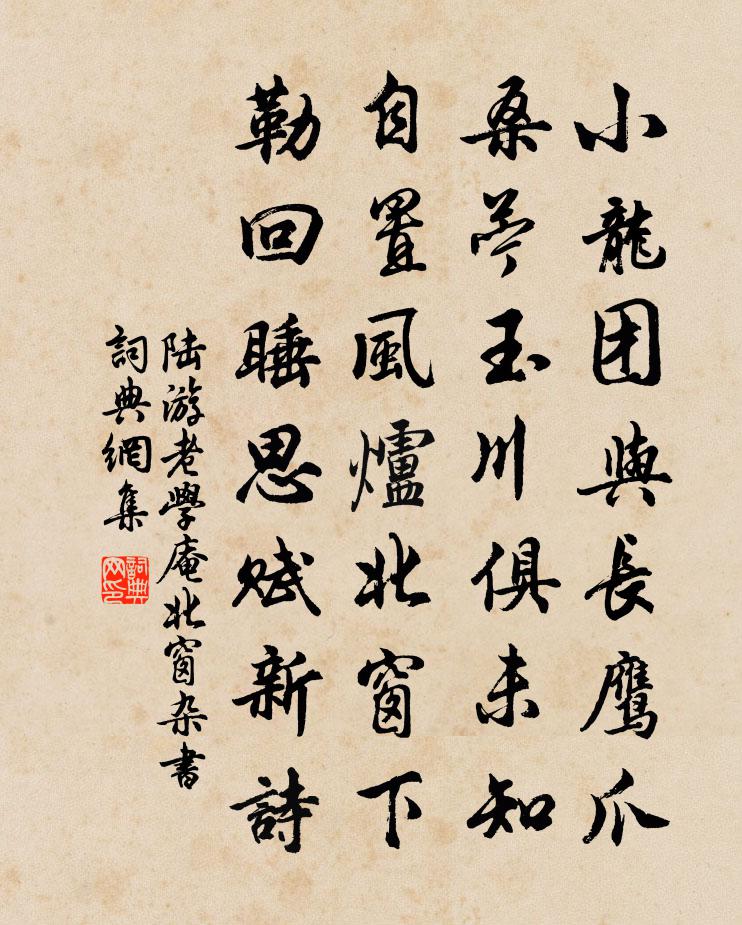 小龍团與長鷹爪
桑苧玉川俱未知
自置風爐北窗下
勒回睡思赋新詩
陆游老學庵北窗杂書
詞典網集
詞典
网印